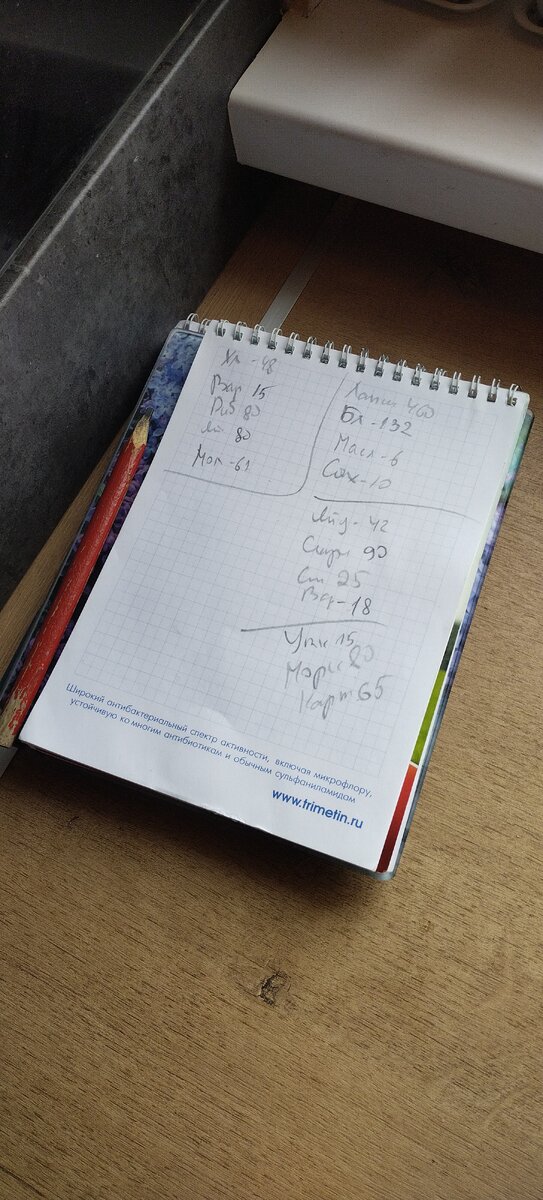 Хл - 48
Вар 15
80
80
Мол - 61
460
Бл - 132
Масл - 6
10
42
Сыр 90
См 25
Вар - 18
15
Морк 80
Карт 65
Широкий антибактериальный спектр активности, включая микрофлору,
устойчивую ко многим антибиотикам и обычным сульфаниламидам
www.trimetin.ru